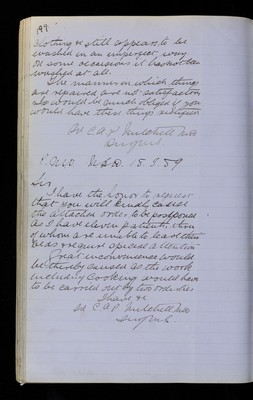 199
clothing & still appears to be
washed in an imperfect way
on some occasions it has not been
washed at all.
The manner in which things
are repaired are not satisfactory
I would be much obliged if you
would have these things
Sd C A P Mitchell
Surgeon
P.M.O. 15.3.89
Sir
I have the honor to request
that you will kindly cause
the attached order to be postponed
as I have eleven patients, three
of whom are unable to leave their
beds & require special attention
Great inconvenience would
be thereby caused as the work
including Cooking would have
to be carried out by two orderlies
I have &c
Sd C A P Mitchell
Surgeon